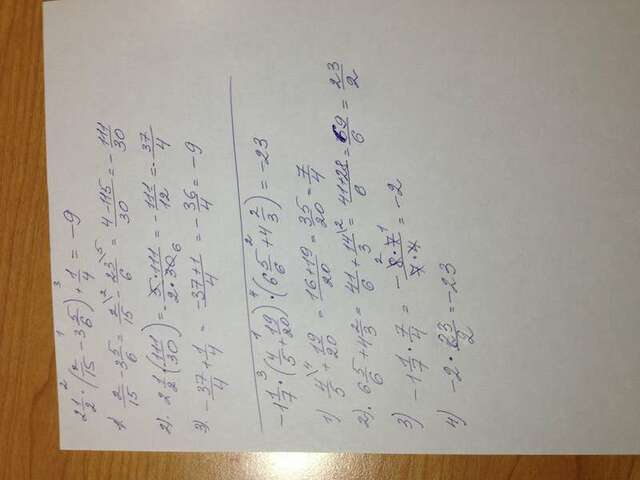 2 1/2 · (2/15 − 3 5/6) + 1/4 = −9
1) 2/15 − 3 5/6 = 2/15 − 23/6 = (4−115)/30 = −111/30
2). 2 1/2 · (111/30) = −(5·111)/(2·30) = −111/12 = −37/4
3) −37/4 + 1/4 = (−37+1)/4 = −36/4 = −9
−1 1/7 · (4/5 + 19/20) · (6 5/6 + 4 2/3) = −23
1) 4/5 + 19/20 = (16+19)/20 = 35/20 = 7/4
2). 6 5/6 + 4 2/3 = 41/6 + 14/3 = (41+28)/6 = 69/6 = 23/2
3) −1 1/7 · 7/4 = −(8·7)/(7·4) = −2
4) −2 · 23/2 = −23